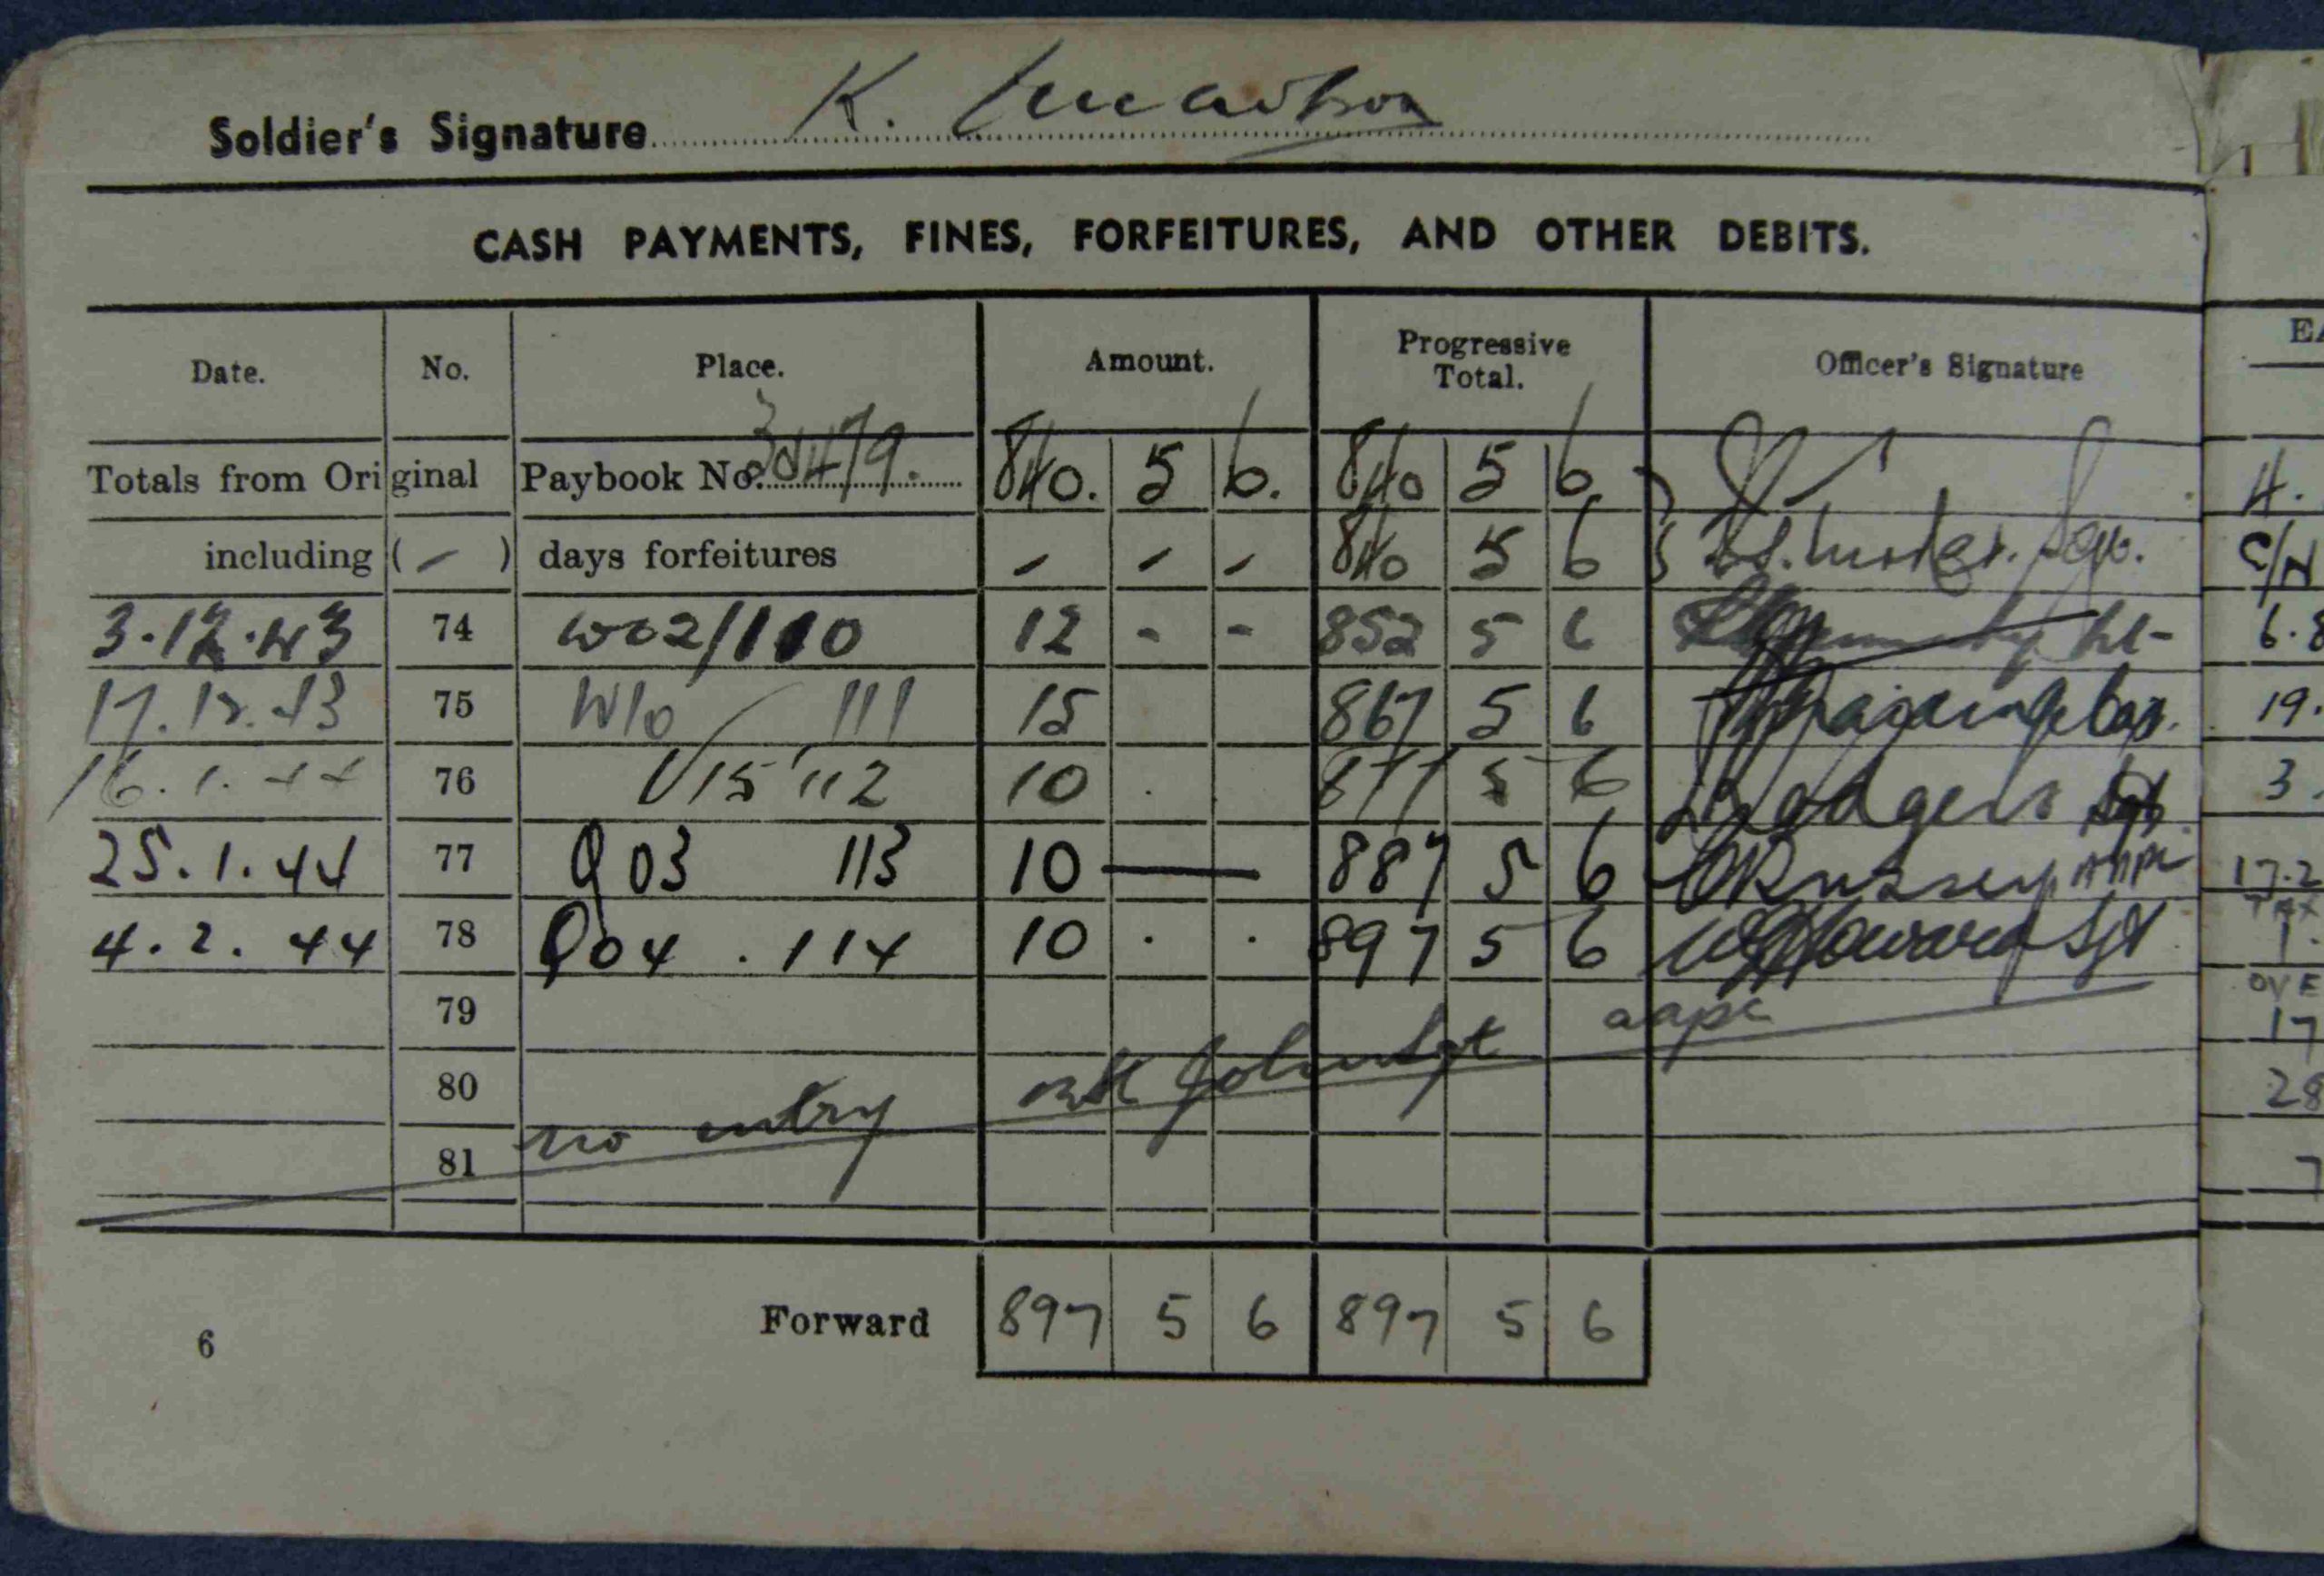 Soldier's Signature K.
CASH PAYMENTS, FINES, FORFEITURES, AND OTHER DEBITS.
Date. No. Place. Amount. Progressive Total. Officer's Signature
Totals from Original Paybook No. 840. 5 6. 840 5 6
including ( - ) days forfeitures - - - 840 5 6
3.12.43 74 W02/110 12 - - 852 5 6 Lt-
17.12.43 75 W10/111 15 867 5 6
16.1.44 76 V15 112 10 . . 877 5 6 Rodgers Sgt
25.1.44 77 Q03 113 10 — 887 5 6
4.2.44 78 Q04 . 114 10 . . 897 5 6 Howard Sgt
79 aapc
80 Sgt
81 no entry
Forward 897 5 6 897 5 6
6
EA
H.
C/N
6.8
19.
3.
17.2
1.
OVE
17
28
7